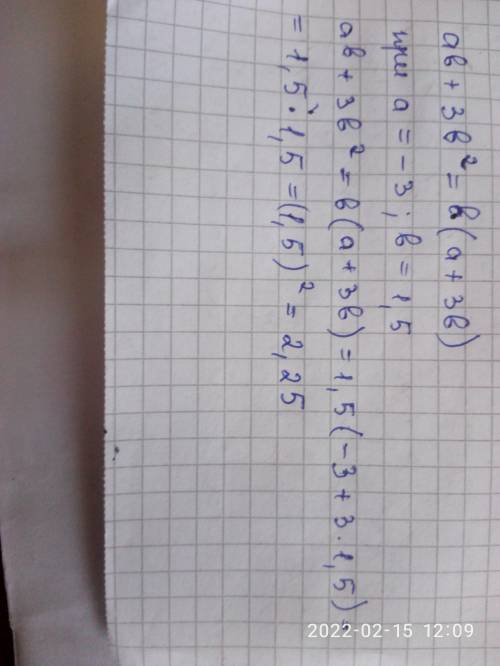 ab + 3b² = b(a + 3b)
при a = -3; b = 1,5
ab + 3b² = b(a + 3b) = 1,5(-3 + 3·1,5) =
= 1,5·1,5 = (1,5)² = 2,25
2022-02-15 12:09